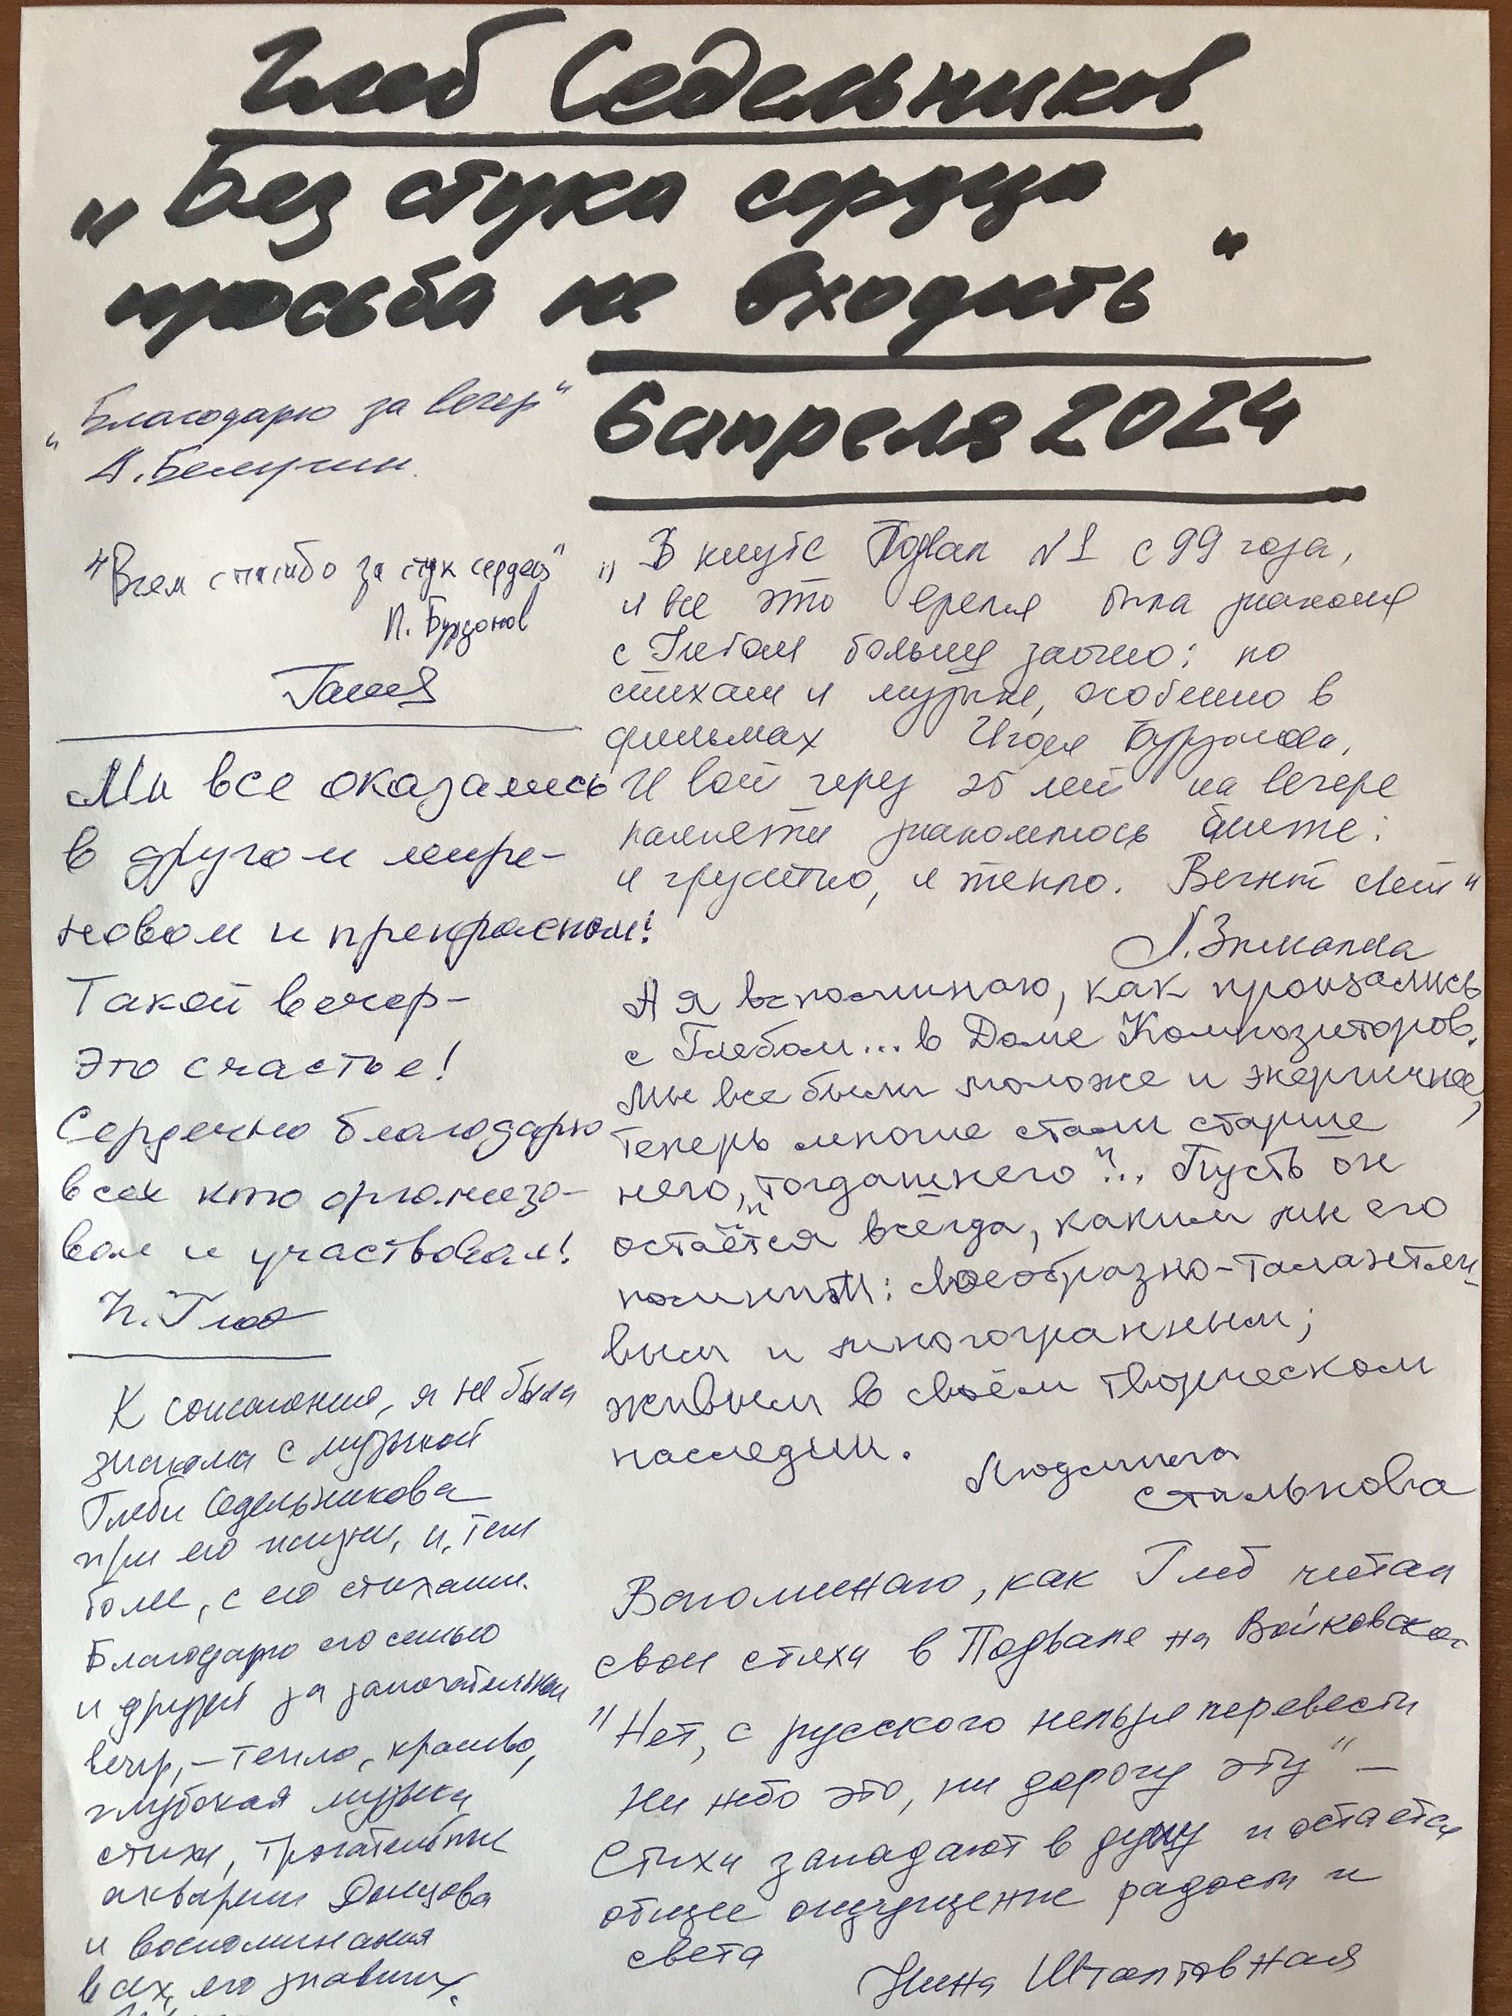 Глеб Седельников
„Без стука сердца
просьба не входить"
6 апреля 2024
„Благодарю за вечер"
А. Белугин.
"Всем спасибо за стук сердец"
И. Бурдонов
Галия
Мы все оказались
в другом мире –
новом и прекрасном!
Такой вечер –
это счастье!
Сердечно благодарю
всех кто организо-
вал и участвовал!
К сожалению, я не была
знакома с музыкой
Глеба Седельникова
при его жизни, и, тем
более, с его стихами.
Благодарю его семью
и друзей за замечательный
вечер, – тепло, красиво,
глубокая музыка
стихи, трогательные
акварели
и воспоминания
всех, его знавших.
"В клубе Подвал №1 с 99 года,
и все это время была знакома
с Глебом больше заочно: по
стихам и музыке, особенно в
фильмах Игоря Бурдонова.
И вот через 25 лет на вечере
памяти знакомлюсь ближе:
и грустно, и тепло. Свет"
Л. Зималина
А я вспоминаю, как прощались
с Глебом... в Доме Композиторов.
Мы все были моложе и энергичнее,
теперь многие стали старше
него, „тогдашнего"... Пусть он
остаётся всегда, каким мы его
помним: своеобразно-талантли-
вым и многогранным;
живым в своём творческом
наследии.
Людмила
Сталькова
Вспоминаю, как Глеб читал
свои стихи в Подвале на Войковской
"Нет, с русского нельзя перевести
ни небо это, ни дорогу эту" –
Стихи западают в душу и остается
общее ощущение радости и
света
Нина